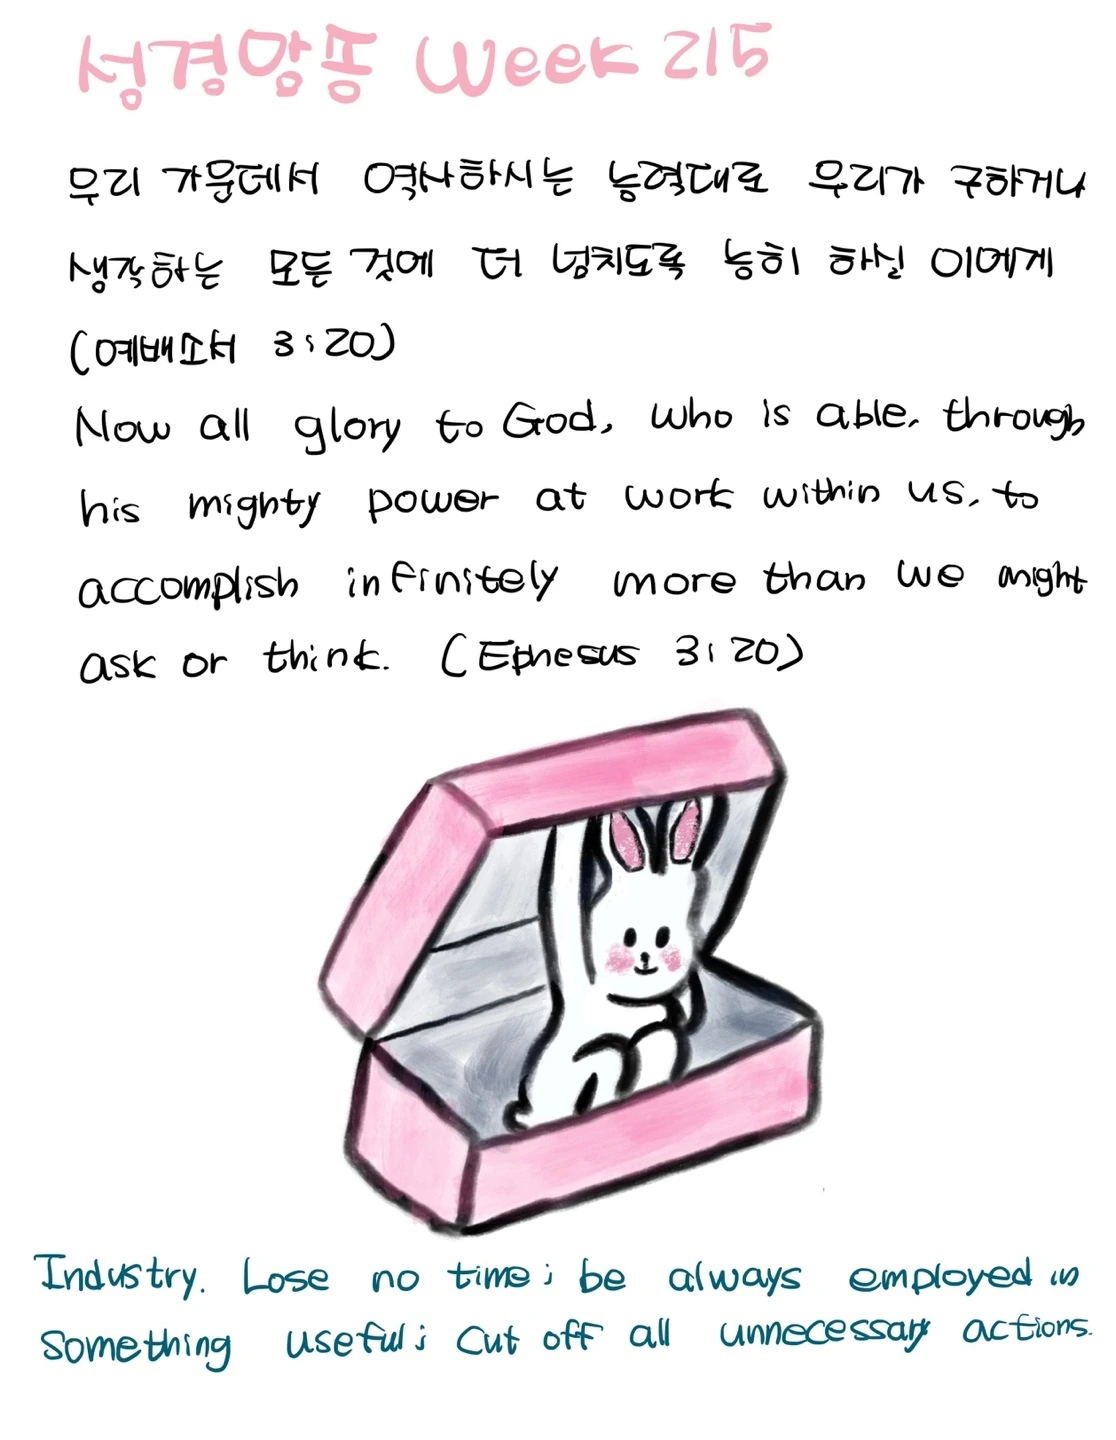 성경암퐁 Week 215
우리 가운데서 역사하시는 능력대로 우리가 구하거나
생각하는 모든 것에 더 넝치도록 능히 하실 이에게
(예배소서 3:20)
Now all glory to God, who is able, through
his mighty power at work within us, to
accomplish infinitely more than we might
ask or think. (Ephesus 3:20)
Industry. Lose no time; be always employed in
something useful; cut off all unnecessary actions.